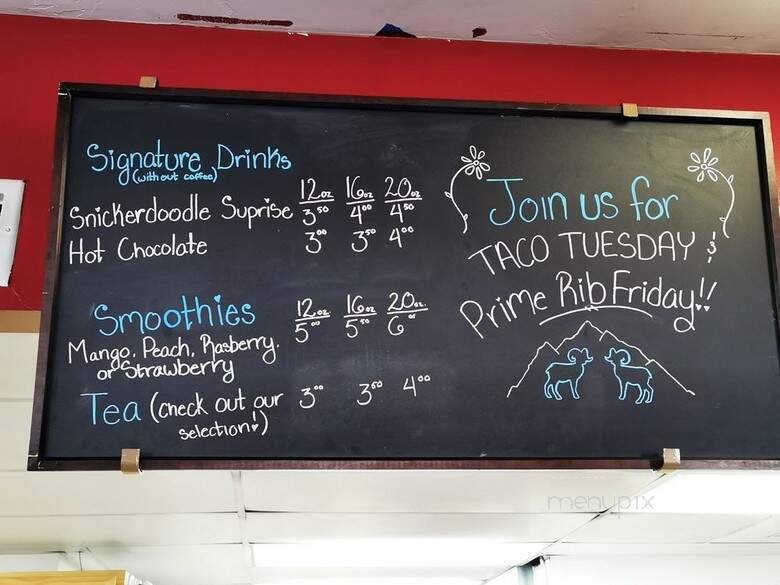 Signature Drinks
(without coffee)
12oz 16oz 20oz
Snickerdoodle Suprise 3⁵⁰ 4⁰⁰ 4⁵⁰
Hot Chocolate 3⁰⁰ 3⁵⁰ 4⁰⁰
Smoothies 12oz 16oz 20oz
5⁰⁰ 5⁵⁰ 6⁰⁰
Mango, Peach, Rasberry,
or Strawberry
Tea (check out our 3⁰⁰ 3⁵⁰ 4⁰⁰
selection!)
Join us for
TACO TUESDAY &
Prime Rib Friday!!
menupix